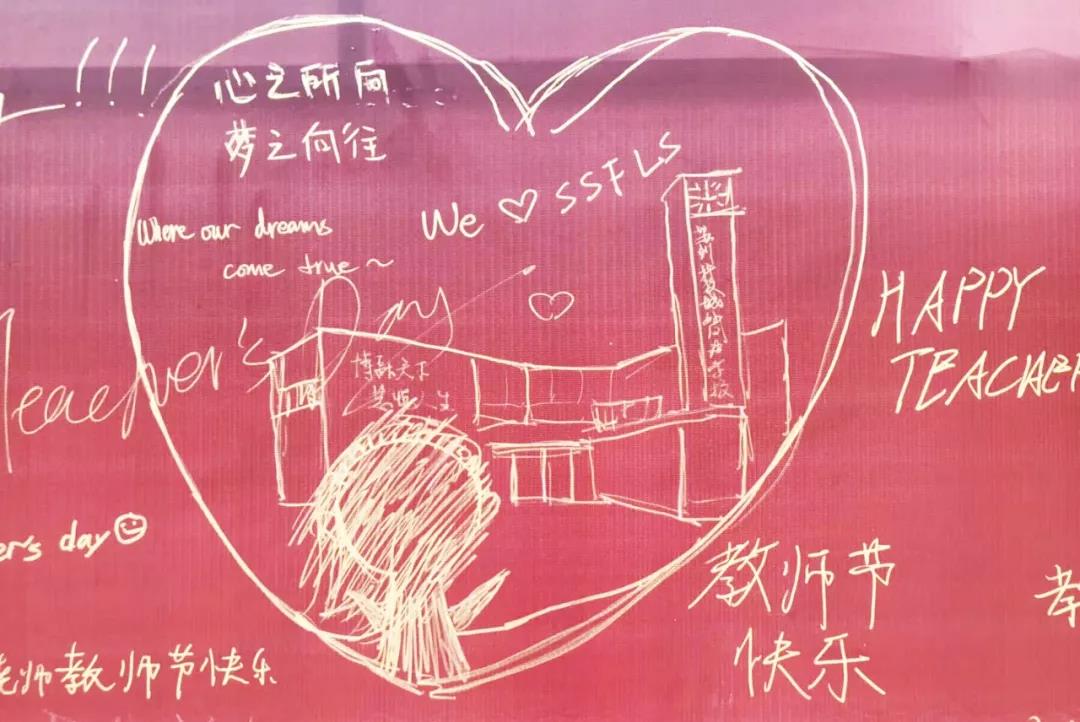 !!!
心之所向
梦之向往
We ♡ SSFLS
Where our dreams
come true~
Teacher's Day
HAPPY
TEACHER
博融天下
苏州科技城外国语学校
er's day☺
教师节
快乐
老师教师节快乐